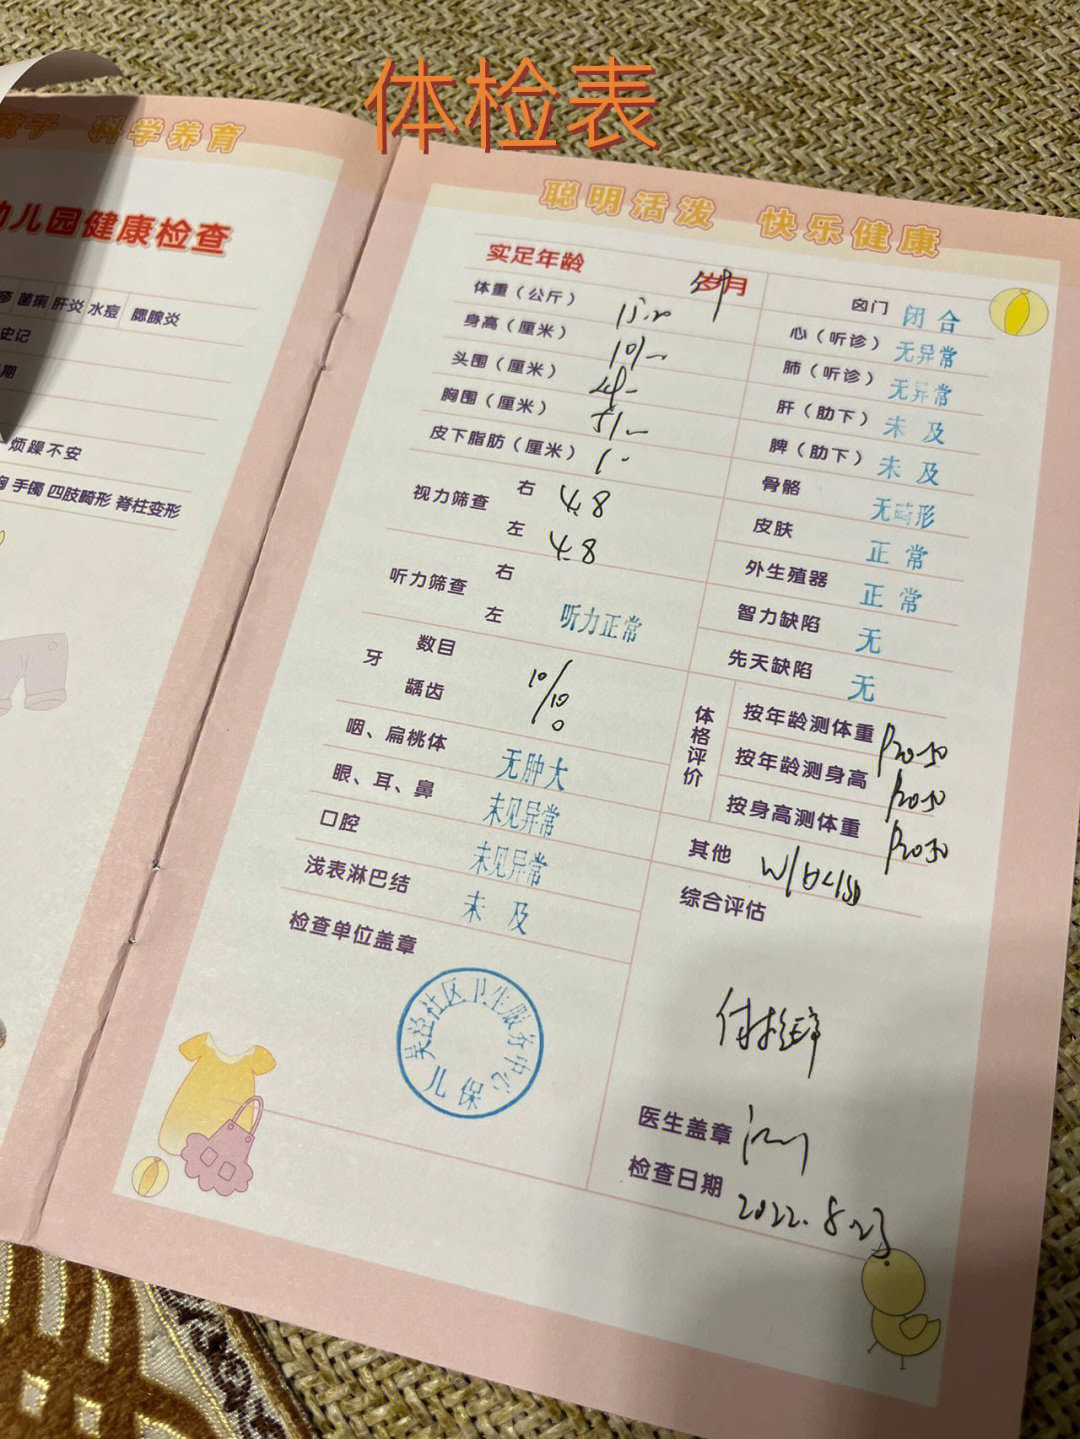 体检表
科学养育
幼儿园健康检查
疹 菌痢 肝炎 水痘 腮腺炎
史记
期
烦躁不安
胸 手镯 四肢畸形 脊柱变形
聪明活泼 快乐健康
实足年龄 岁 月
体重（公斤） 15.20
身高（厘米） 101-
头围（厘米）
胸围（厘米） 51-
皮下脂肪（厘米） 1-
视力筛查 右 4.8
左 4.8
听力筛查 右
左 听力正常
牙 数目 10/10
龋齿 0
咽、扁桃体 无肿大
眼、耳、鼻 未见异常
口腔 未见异常
浅表淋巴结 未及
检查单位盖章
吴泾社区卫生服务中心
儿保
囟门 闭合
心（听诊） 无异常
肺（听诊） 无异常
肝（肋下） 未及
脾（肋下） 未及
骨骼 无畸形
皮肤 正常
外生殖器 正常
智力缺陷 无
先天缺陷 无
体格评价
按年龄测体重 P20-50
按年龄测身高 P20-50
按身高测体重 P20-50
其他
综合评估
医生盖章
检查日期 2022.8.23